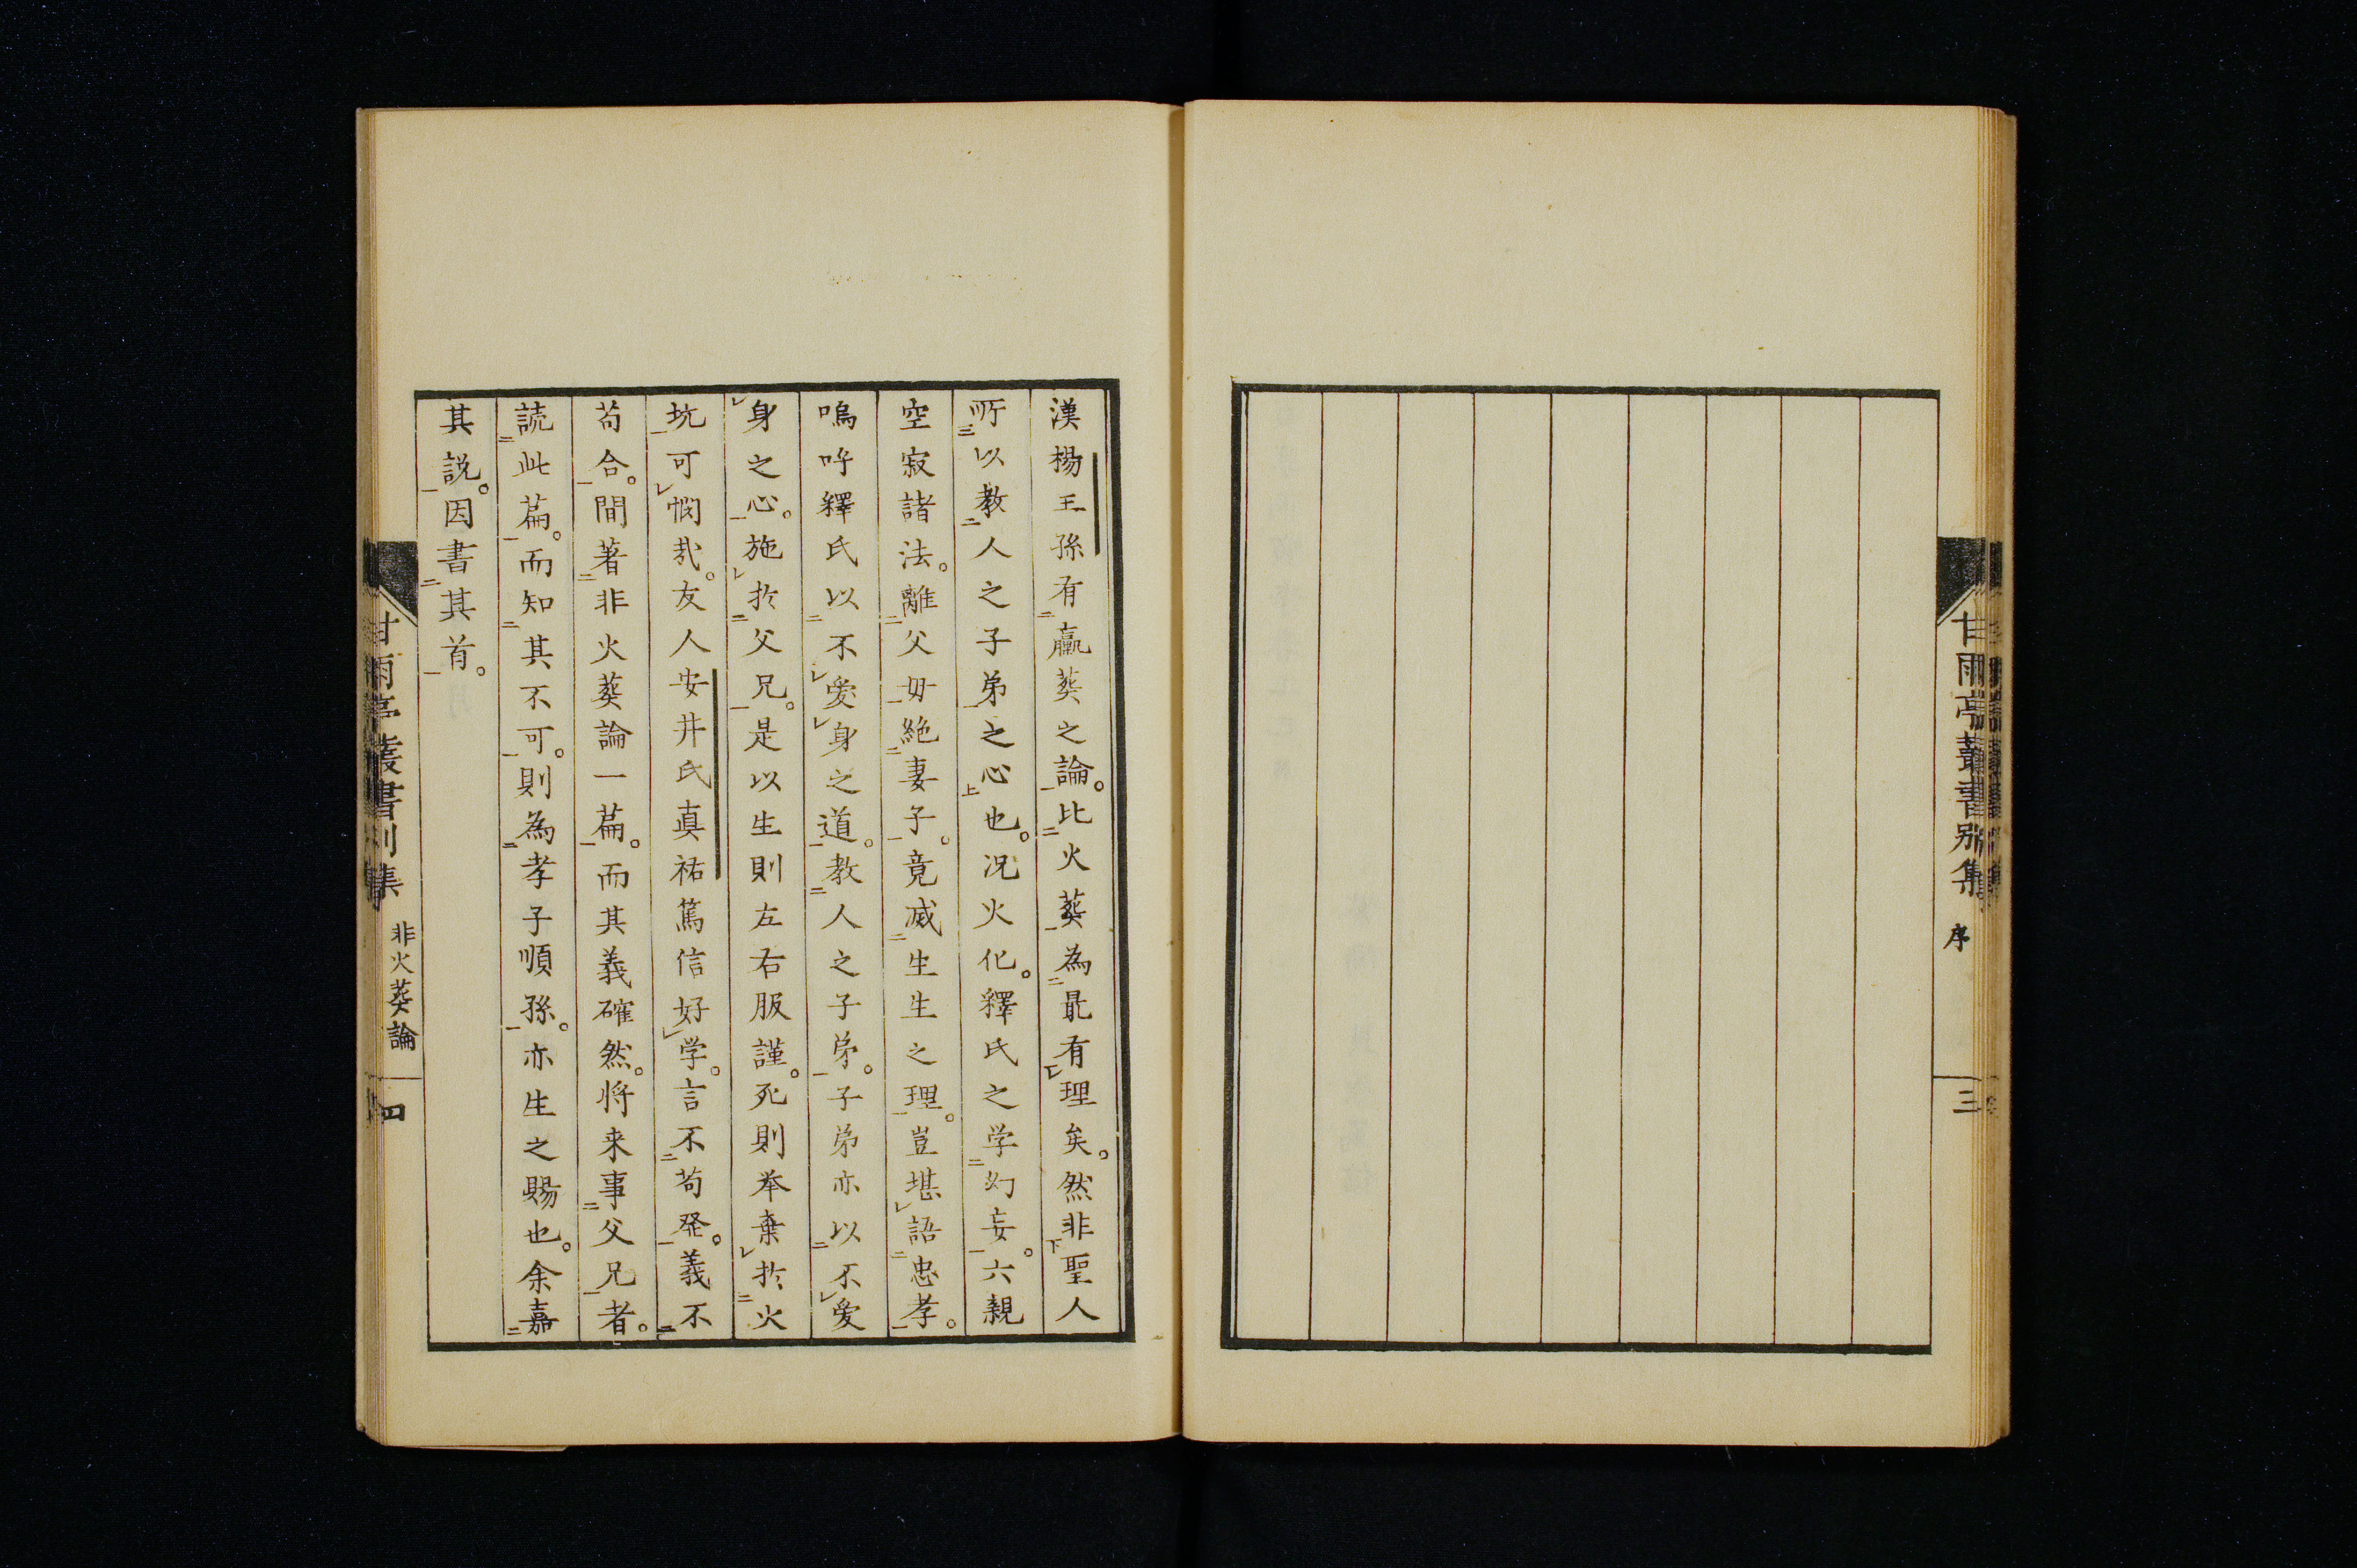 甘雨亭叢書別集 序 三
漢楊王孫有臝葬之論。比火葬為最有理矣。然非聖人
所以教人之子弟之心也。況火化。釋氏之学幻妄。六親
空寂諸法。離父毋絶妻子。竟滅生生之理。豈堪語忠孝。
嗚呼釋氏以不愛身之道。教人之子弟。子弟亦以不愛
身之心。施於父兄。是以生則左右服謹。死則举棄於火
坑可憫哉。友人安井氏真祐篤信好学。言不苟発。義不
苟合。間著非火葬論一篇。而其義確然。将来事父兄者。
読此篇。而知其不可。則為孝子順孫。亦生之賜也。余嘉
其説。因書其首。
甘雨亭叢書別集 非火葬論 四